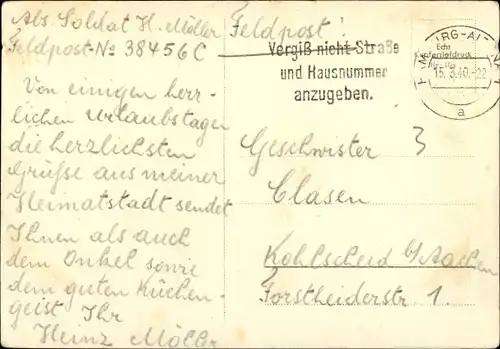 Abs. Soldat H. Möller Feldpost!
Feldpost-No 38456C
Von einigen herr-
lichen Urlaubstagen
die herzlichsten
Grüße aus meiner
Heimatstadt sendet
Ihnen als auch
dem Onkel sowie
dem guten Küchen-
geist Ihr
Heinz Möller
Vergiß nicht Straße
und Hausnummer
anzugeben.
15.3.40.-22
a
Echt
Kupfertiefdruck
Geschwister 3
Clasen
Kohlscheid b/Aachen
Forstheiderstr. 1.